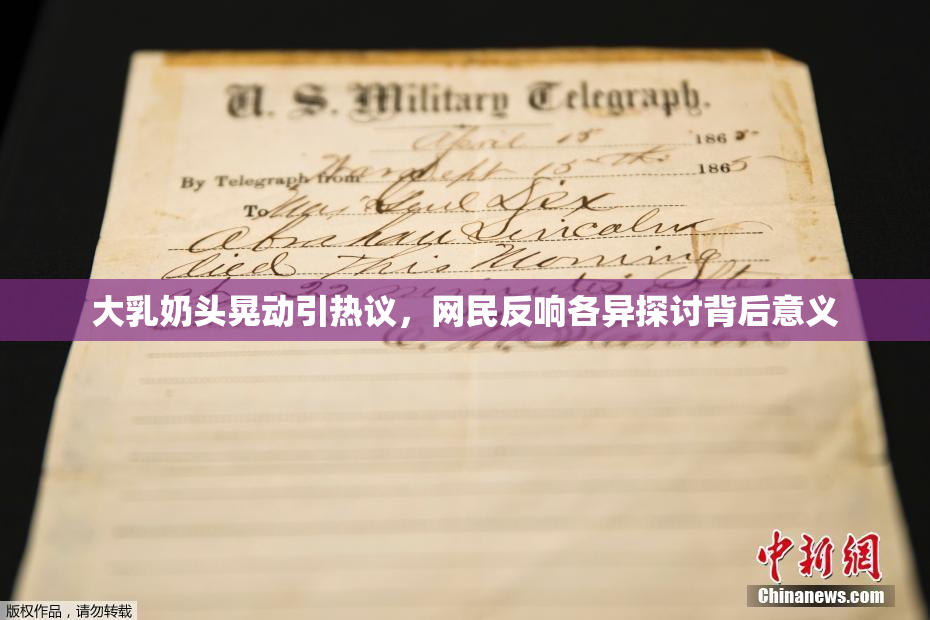 U. S. Military Telegraph.
April 15 1865
By Telegraph from War Dept 15th 1865
To Maj Genl Dix
Abraham Lincoln
died This Morning
at 22 minutes after
大乳奶头晃动引热议，网民反响各异探讨背后意义
E. M. Stanton
中新网
Chinanews.com
版权作品，请勿转载